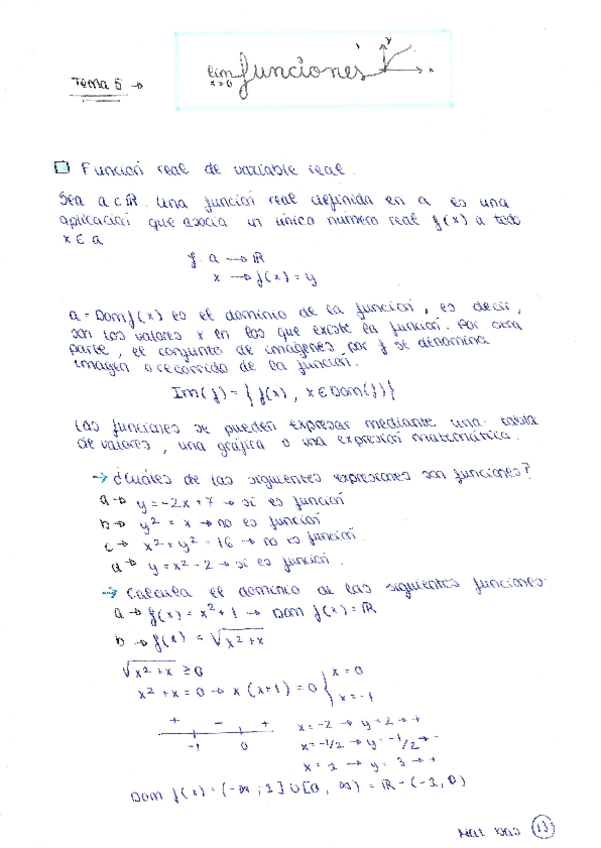 Tema 5 →
lim funciones
x→0
y
x
Función real de variable real.
Sea a ⊂ ℝ. Una función real definida en a es una
aplicación que asocia un único número real f(x) a todo
x ∈ a
f: a → ℝ
x → f(x) = y
a = Dom f(x) es el dominio de la función, es decir,
son los valores x en los que existe la función. Por otra
parte, el conjunto de imágenes por f se denomina
imagen o recorrido de la función.
Im(f) = { f(x), x ∈ Dom(f) }
Las funciones se pueden expresar mediante una tabla
de valores, una gráfica o una expresión matemática.
→ ¿Cuáles de las siguientes expresiones son funciones?
a → y = -2x + 7 → sí es función
b → y² = x → no es función
c → x² + y² = 16 → no es función.
d → y = x² - 2 → sí es función.
→ Calcula el dominio de las siguientes funciones:
a → f(x) = x² + 1 → Dom f(x) = ℝ
b → f(x) = √x² + x
√x² + x ≥ 0
x² + x = 0 → x (x+1) = 0 { x = 0
x = -1
+ - +
-1 0
x = -2 → y = 2 → +
x = -1/2 → y = -1/2 → -
x = 1 → y = 3 → +
Dom f(x) = (-∞, 1] ∪ [0, ∞) = ℝ - (-1, 0)
13